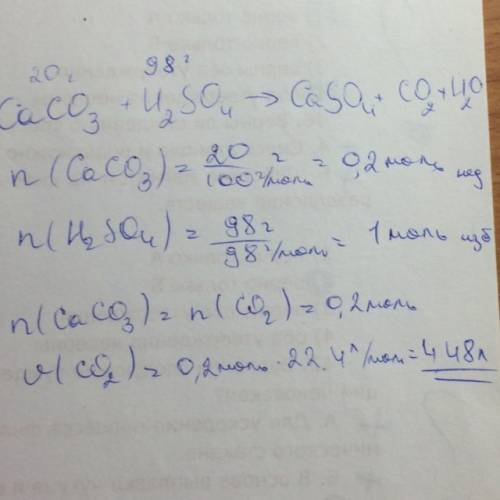 20г 98г
CaCO3 + H2SO4 → CaSO4 + CO2 + H2O
n(CaCO3) = 20 г / 100 г/моль = 0,2 моль нед
n(H2SO4) = 98 г / 98 г/моль = 1 моль изб
n(CaCO3) = n(CO2) = 0,2 моль
v(CO2) = 0,2 моль · 22.4 л/моль = 4 48 л
А. Для ускорения